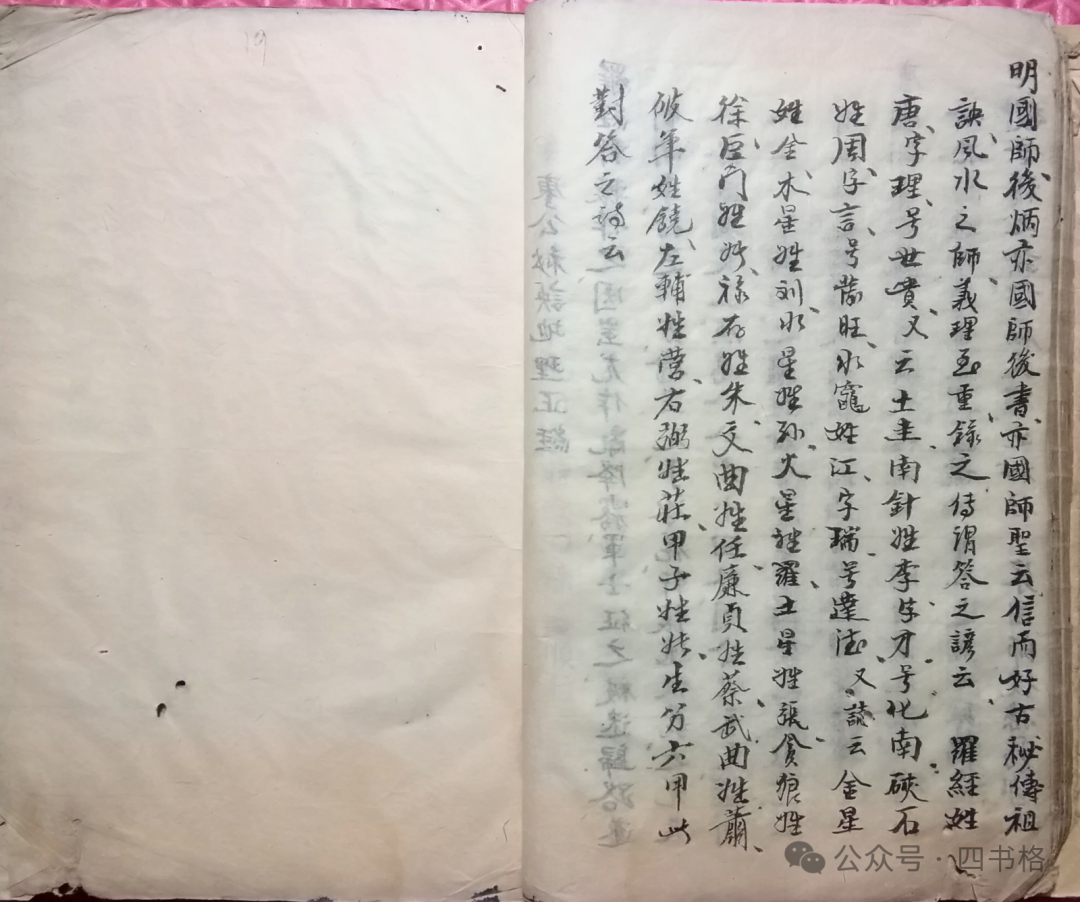 明國師後炳亦國師後書亦國師聖云信而好古秘傳祖
訣風水之師義理至重錄之傳謂答之諺云羅經姓
唐字理号世貴又云土圭南針姓李字才号化南硤石
姓周字言号蒙旺水竉姓江字瑞号達法又讀云金星
姓金木星姓刘水星姓孙火星姓羅土星姓張貪狼姓
徐巨门姓祿存姓朱文曲姓任廉貞姓蔡武曲姓蕭
破軍姓饒左輔姓營右弼姓莊甲子姓生分六甲此
對答之詩云
公众号·四书格